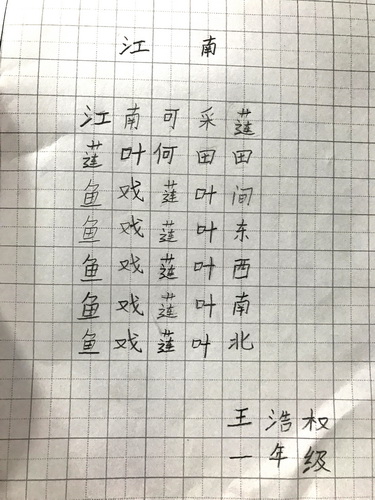 江南
江南可采莲
莲叶何田田
鱼戏莲叶间
鱼戏莲叶东
鱼戏莲叶西
鱼戏莲叶南
鱼戏莲叶北
王浩权
一年级